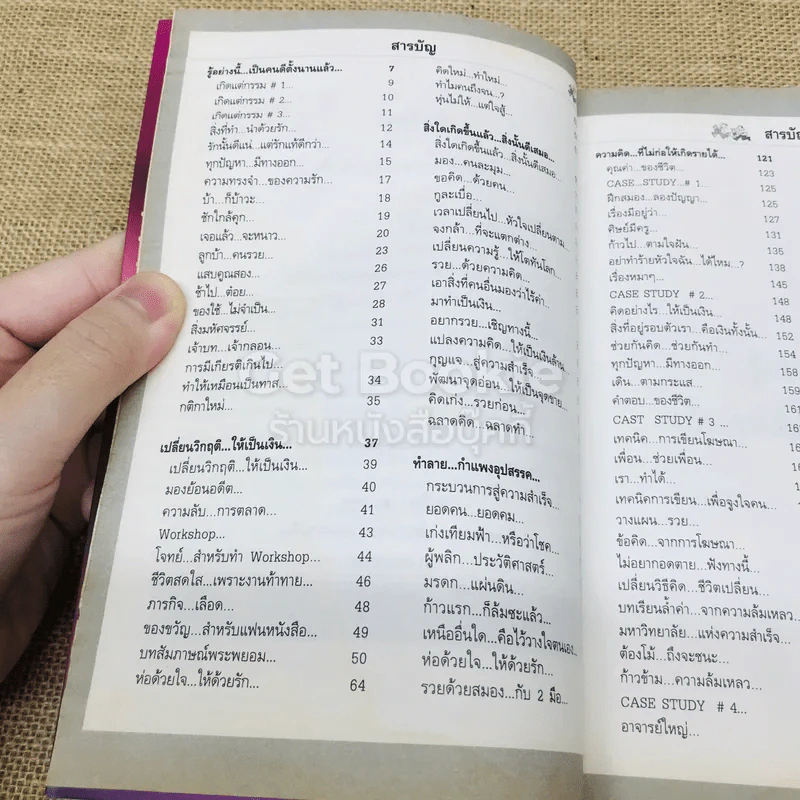 สารบัญ
รู้อย่างนี้...เป็นคนดีตั้งนานแล้ว... 7
เกิดแต่กรรม # 1... 9
เกิดแต่กรรม # 2... 10
เกิดแต่กรรม # 3... 11
สิ่งที่ทำ...นำด้วยรัก... 12
รักนั้นดีแน่...แต่รักแท้ดีกว่า... 14
ทุกปัญหา...มีทางออก... 15
ความทรงจำ...ของความรัก... 17
บ้า...ก็บ้าวะ... 18
ชักใกล้คุก... 19
เจอแล้ว...จะหนาว... 20
ลูกบ้า...คนรวย... 23
แสบคูณสอง... 26
ช้าไป...ต๋อย... 27
ของใช้...ไม่จำเป็น... 28
สิ่งมหัศจรรย์... 31
เจ้าบท...เจ้ากลอน... 33
การมีเกียรติเกินไป...
ทำให้เหมือนเป็นทาส... 34
กติกาใหม่... 35
เปลี่ยนวิกฤติ...ให้เป็นเงิน... 37
เปลี่ยนวิกฤติ...ให้เป็นเงิน... 39
มองย้อนอดีต... 40
ความลับ...การตลาด... 41
Workshop... 43
โจทย์...สำหรับทำ Workshop... 44
ชีวิตสดใส...เพราะงานท้าทาย... 46
ภารกิจ...เลือด... 48
ของขวัญ...สำหรับแฟนหนังสือ... 49
บทสัมภาษณ์พระพยอม... 50
ห่อด้วยใจ...ให้ด้วยรัก... 64
คิดใหม่...ทำใหม่...
ทำไมคนถึงจน...?
หุ่นไม่ให้...แต่ใจสู้...
สิ่งใดเกิดขึ้นแล้ว...สิ่งนั้นดีเสมอ...
สิ่งใดเกิดขึ้นแล้ว...สิ่งนั้นดีเสมอ...
มอง...คนละมุม...
ขอคิด...ด้วยคน...
กูละเบื่อ...
เวลาเปลี่ยนไป...หัวใจเปลี่ยนตาม...
จงกล้า...ที่จะแตกต่าง...
เปลี่ยนความรู้...ให้โตทันโลก...
รวย...ด้วยความคิด...
เอาสิ่งที่คนอื่นมองว่าไร้ค่า...
มาทำเป็นเงิน...
อยากรวย...เชิญทางนี้...
แปลงความคิด...ให้เป็นเงินล้าน...
กุญแจ...สู่ความสำเร็จ...
พัฒนาจุดอ่อน...ให้เป็นจุดขาย...
คิดเก่ง...รวยก่อน...
ฉลาดคิด...ฉลาดทำ...
ทำลาย...กำแพงอุปสรรค...
กระบวนการสู่ความสำเร็จ...
ยอดคน...ยอดคม...
เก่งเทียมฟ้า...หรือว่าโชค...
ผู้พลิก...ประวัติศาสตร์...
มรดก...แผ่นดิน...
ก้าวแรก...ก็ล้มซะแล้ว...
เหนืออื่นใด...คือไว้วางใจตนเอง...
ห่อด้วยใจ...ให้ด้วยรัก...
รวยด้วยสมอง...กับ 2 มือ...
สารบัญ
ความคิด...ที่ไม่ก่อให้เกิดรายได้... 121
คุณค่า...ของชีวิต... 123
CASE...STUDY...# 1... 125
ฝึกสมอง...ลองปัญญา... 125
เรื่องมีอยู่ว่า... 127
ศิษย์มีครู... 131
ก้าวไป...ตามใจฝัน... 135
อย่าทำร้ายหัวใจฉัน...ได้ไหม...? 138
เรื่องหมาๆ... 145
CASE STUDY # 2... 148
คิดอย่างไร...ให้เป็นเงิน... 148
สิ่งที่อยู่รอบตัวเรา...คือเงินทั้งนั้น... 152
ช่วยกันคิด...ช่วยกันทำ... 154
ทุกปัญหา...มีทางออก... 158
เดิน...ตามกระแส... 159
คำตอบ...ของชีวิต...
CAST STUDY # 3...
เทคนิค...การเขียนโฆษณา...
เพื่อน...ช่วยเพื่อน...
เรา...ทำได้...
เทคนิคการเขียน...เพื่อจูงใจคน...
วางแผน...รวย...
ข้อคิด...จากการโฆษณา...
ไม่อยากอดตาย...ฟังทางนี้...
เปลี่ยนวิธีคิด...ชีวิตเปลี่ยน...
บทเรียนล้ำค่า...จากความล้มเหลว...
มหาวิทยาลัย...แห่งความสำเร็จ...
ต้องโม้...ถึงจะชนะ...
ก้าวข้าม...ความล้มเหลว...
CASE STUDY # 4...
อาจารย์ใหญ่...
ร้านหนังสือบุ๊คคี้